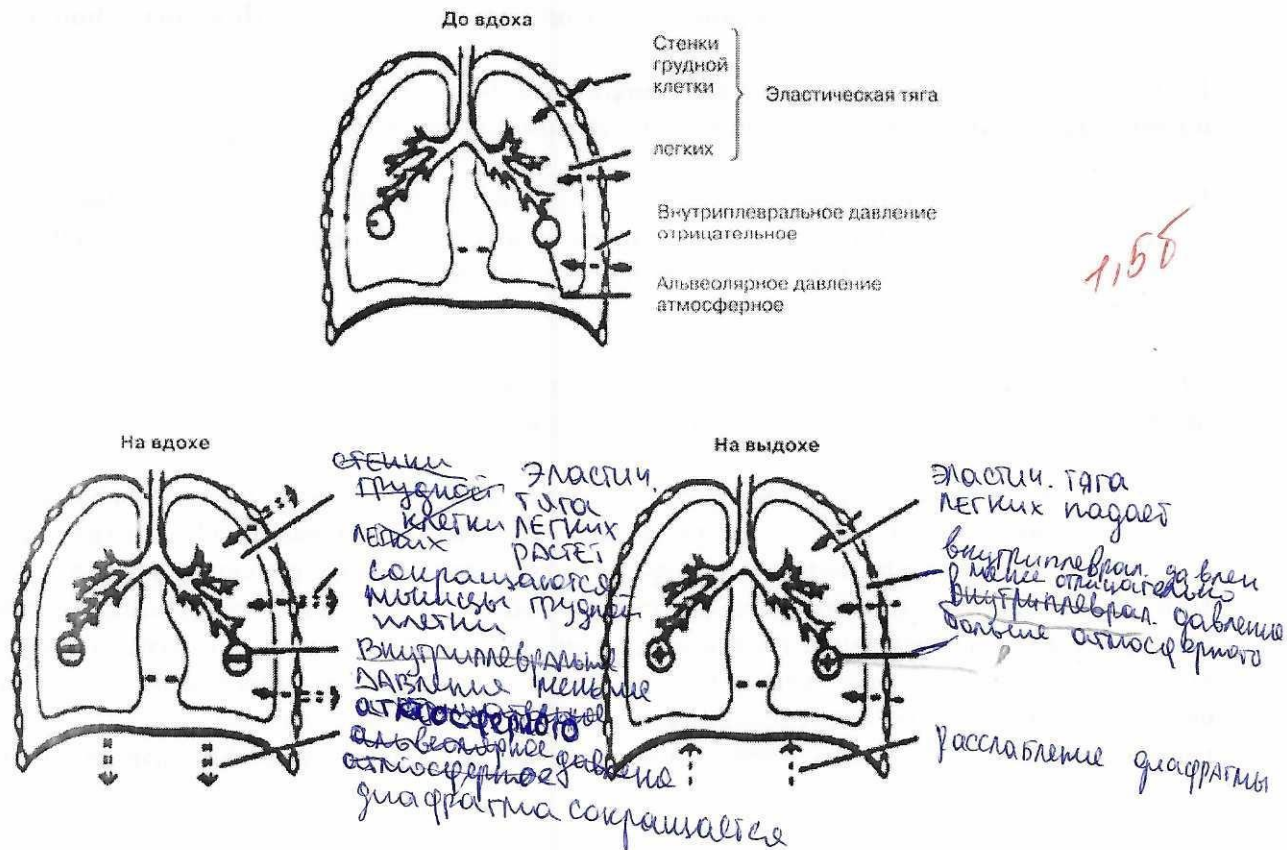 До вдоха
Стенки
грудной
клетки
Эластическая тяга
легких
Внутриплевральное давление
отрицательное
Альвеолярное давление
атмосферное
1,5б
На вдохе
стенки эластич.
грудной тяга
клетки легких
легких растет
сокращаются
мышцы грудной
клетки
Внутриплевральное
давления меньше
атмосферного
альвеолярное давлене
атмосферное
диафрагма сокращается
На выдохе
эластич. тяга
легких падает
внутриплеврал. давлен
менее отрицательно
внутриплеврал. давление
больше атмосферного
расслабление диафрагмы